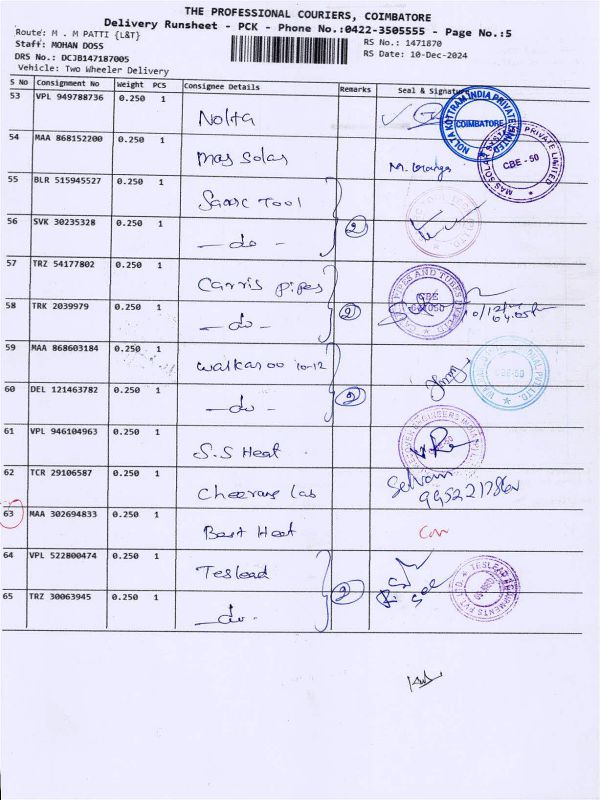 THE PROFESSIONAL COURIERS, COIMBATORE
Delivery Runsheet - PCK - Phone No.:0422-3505555 - Page No.:5
Route: M . M PATTI {L&T}
RS No.: 1471870
Staff: MOHAN DOSS
RS Date: 10-Dec-2024
DRS No.: DCJB147187005
Vehicle: Two Wheeler Delivery
S No Consignment No Weight PCS Consignee Details Remarks Seal & Signature
53 VPL 949788736 0.250 1 Nolta
NOLTA KOTTRAM INDIA PRIVATE LIMITED COIMBATORE
54 MAA 868152200 0.250 1 Mas Solar
MAS SOLAR PRIVATE LIMITED CBE - 50
55 BLR 515945527 0.250 1 Tool
56 SVK 30235328 0.250 1 - do - 2
57 TRZ 54177802 0.250 1 Carris Pipes
PIPES AND TUBES CBE
58 TRK 2039979 0.250 1 - do - 2 10/12/
59 MAA 868603184 0.250 1 Walkaroo 10-12
CBE-50
60 DEL 121463782 0.250 1 - do - 2
61 VPL 946104963 0.250 1 S.S Heat
62 TCR 29106587 0.250 1 Cheerans Lab Selvam
63 MAA 302694833 0.250 1 Best Heat
64 VPL 522800474 0.250 1 Teslead
TESLEAD EQUIPMENTS PVT LTD
65 TRZ 30063945 0.250 1 - do - 2